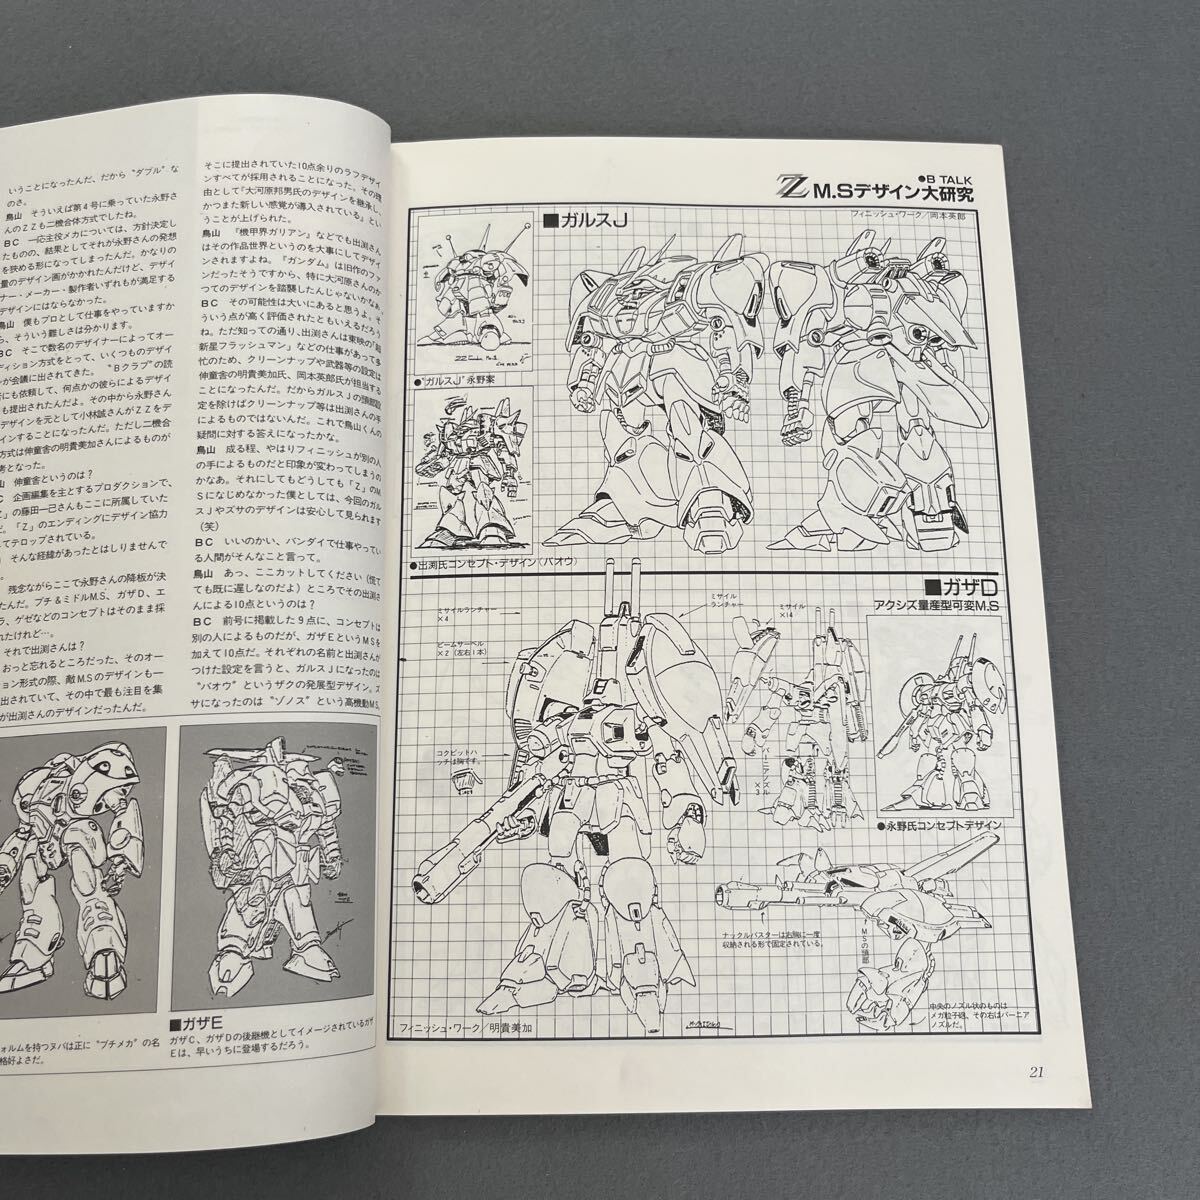 いうことになったんだ、だから“ダブル”な
のさ。
鳥山　そういえば第4号に乗っていた永野さ
んのＺＺも二機合体方式でしたね。
ＢＣ　一応主役メカについては、方針決定し
たものの、結果としてそれが永野さんの発想
を狭める形になってしまったんだ。かなりの
量のデザイン画がかかれたんだけど、デザイ
ナー・メーカー・製作者いずれもが満足する
デザインにはならなかった。
鳥山　僕もプロとして仕事をやっていますか
ら、そういう難しさは分かります。
ＢＣ　そこで数名のデザイナーによってオー
ディション方式をとって、いくつものデザイ
ンが会議に出されてきた。“Ｂクラブ”の読
者にも依頼して、何点かの彼らによるデザイ
も提出されたんだよ。その中から永野さん
デザインを元として小林誠さんがＺＺをデ
インすることになったんだ。ただし二機合
方式は伸童舎の明貴美加さんによるものが
考となった。
山　伸童舎というのは？
Ｃ　企画編集を主とするプロダクションで、
Ｚ』の藤田一己さんもここに所属していた
だ。「Ｚ」のエンディングにデザイン協力
してテロップされている。
そんな経緯があったとはしりませんで
。
残念ながらここで永野さんの降板が決
たんだ。プチ＆ミドルM.S、ガザＤ、エ
ラ、ゲゼなどのコンセプトはそのまま採
れたけれど…。
それで出渕さんは？
おっと忘れるところだった、そのオー
ション形式の際、敵M.Sのデザインも一
出されていて、その中で最も注目を集
が出渕さんのデザインだったんだ。
そこに提出されていた10点余りのラフデザイ
ンすべてが採用されることになった。その理
由として『大河原邦男氏のデザインを継承し、
かつまた新しい感覚が導入されている』とい
うことが上げられた。
鳥山　『機甲界ガリアン』などでも出渕さん
はその作品世界というのを大事にしてデザイ
ンされますよね。『ガンダム』は旧作のファ
ンだったそうですから、特に大河原さんのか
つてのデザインを踏襲したんじゃないかなぁ
ＢＣ　その可能性は大いにあると思うよ。そ
ういう点が高く評価されたともいえるだろう
ね。ただ知っての通り、出渕さんは東映の『超
新星フラッシュマン』などの仕事があって多
忙のため、クリーンナップや武器等の設定は
伸童舎の明貴美加氏、岡本英郎氏が担当する
ことになったんだ。だからガルスＪの頭部設
定を除けばクリーンナップ等は出渕さんの手
によるものではないんだ。これで鳥山くんの
疑問に対する答えになったかな。
鳥山　成る程、やはりフィニッシュが別の人
の手によるものだと印象が変わってしまうの
かなあ。それにしてもどうしても「Ｚ」のＭ
Ｓになじめなかった僕としては、今回のガル
スＪやズサのデザインは安心して見られます
（笑）
ＢＣ　いいのかい、バンダイで仕事やってい
る人間がそんなこと言って。
鳥山　あっ、ここカットしてください（慌て
ても既に遅しなのだよ）ところでその出渕さ
んによる10点というのは？
ＢＣ　前号に掲載した９点に、コンセプトは
別の人によるものだが、ガザＥというＭＳを
加えて10点だ。それぞれの名前と出渕さんが
つけた設定を言うと、ガルスＪになったのは
“バオウ”というザクの発展型デザイン。ズ
サになったのは“ゾノス”という高機動M.S。
ォルムを持つヌバは正に“プチメカ”の名
格好よさだ。
■ガザＥ
ガザＣ、ガザＤの後継機としてイメージされているガザ
Ｅは、早いうちに登場するだろう。
●B TALK
ZZ M.Sデザイン大研究
■ガルスＪ
フィニッシュ・ワーク／岡本英郎
●“ガルスＪ”永野案
●出渕氏コンセプト・デザイン（バオウ）
■ガザＤ
アクシズ量産型可変M.S
ミサイルランチャー
×４
ビームサーベル
×２（左右１本）
コクピットハ
ッチは胸です。
ミサイル
ランチャー
ミサイル
×14
バーニアンズル
×3
●永野氏コンセプトデザイン
ナックルバスターは右胸に一度
収納される形で固定されている。
ＭＳの頭部
中央のノズル状のものは
メガ粒子砲、その右はバーニア
ノズルだ。
フィニッシュ・ワーク／明貴美加
21